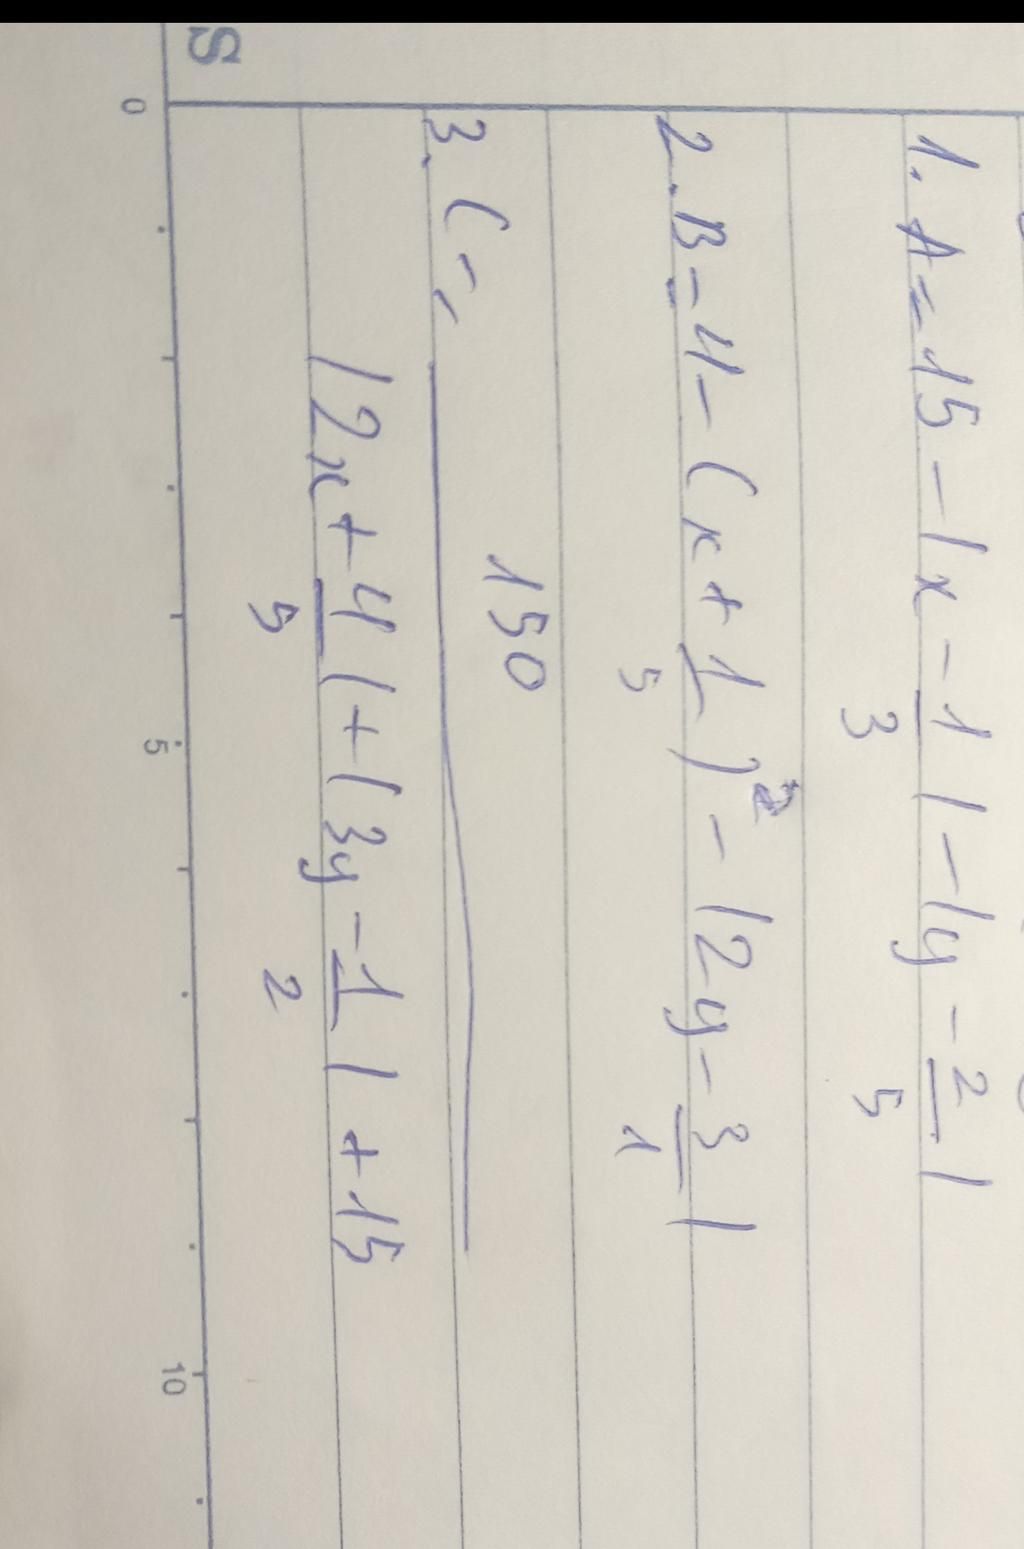 1. A = 15 - |x - 1/3| - |y - 2/5|
2. B = 4 - (x + 1/5)² - |2y - 3/1|
3. C =
150
|2x + 4/5| + |3y - 1/2| + 15
S
0 5 10